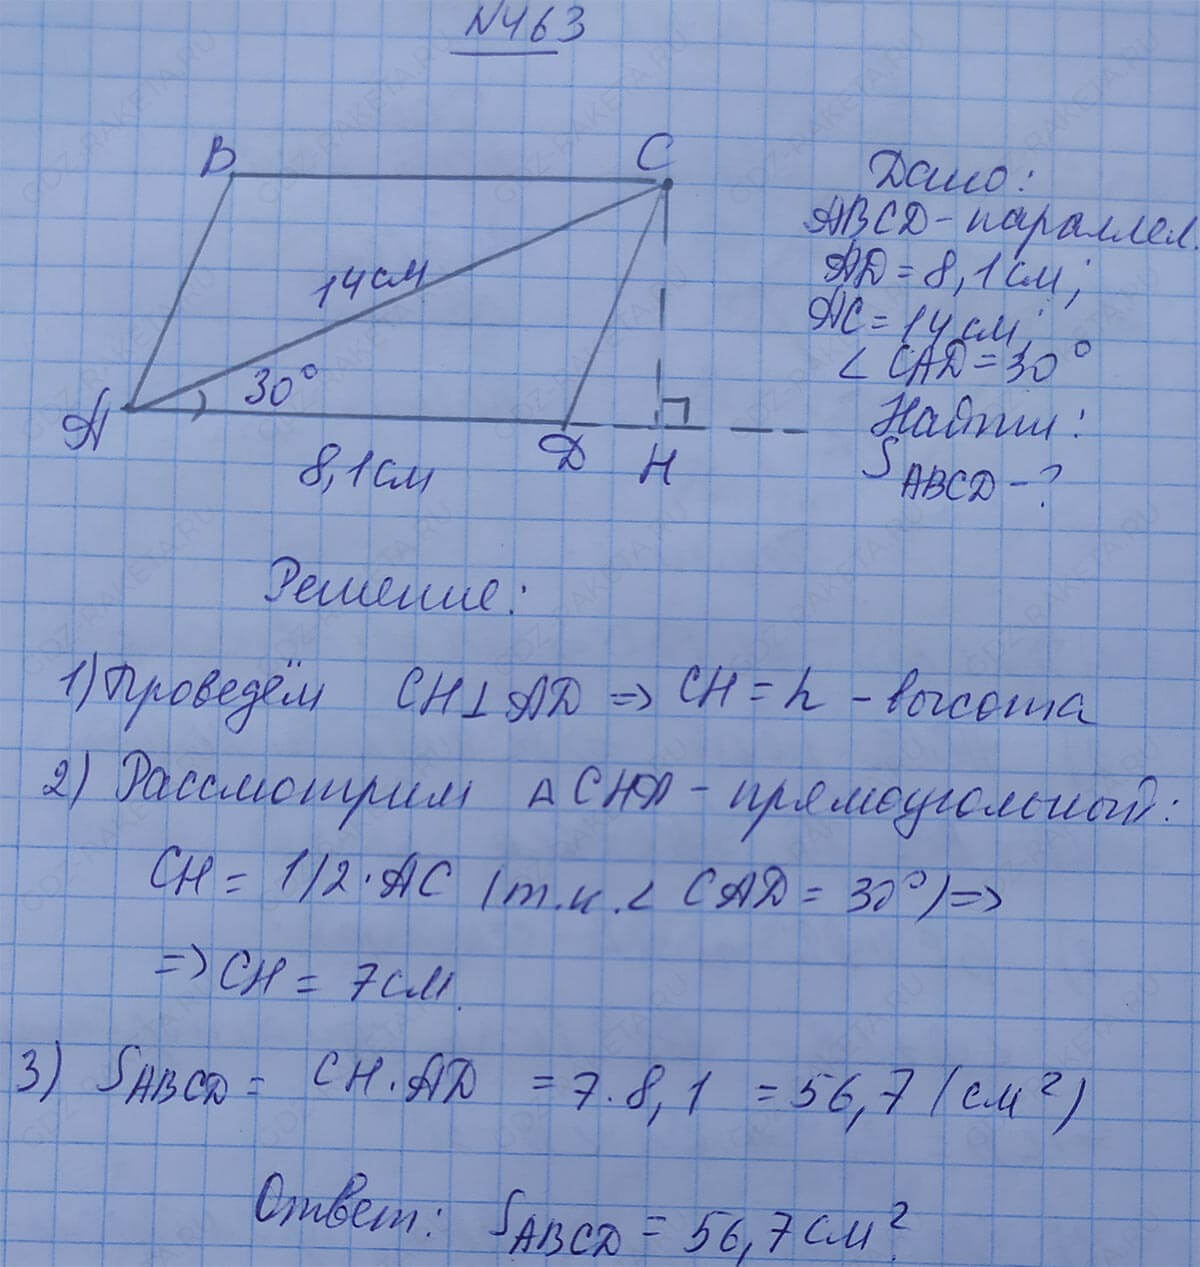 №463
B
C
14см
30°
A
D
H
8,1см
Дано:
ABCD - параллел.
AD = 8,1см;
AC = 14см;
∠ CAD = 30°
Найти:
S ABCD - ?
Решение:
1) Проведём CH⊥AD => CH = h - высота
2) Рассмотрим △CHA - прямоугольный:
CH = 1/2 · AC (т.к. ∠ CAD = 30°) =>
=> CH = 7см.
3) S ABCD = CH · AD = 7 · 8,1 = 56,7 (см²)
Ответ: S ABCD = 56,7 см²
GDZ-RAKETA.RU